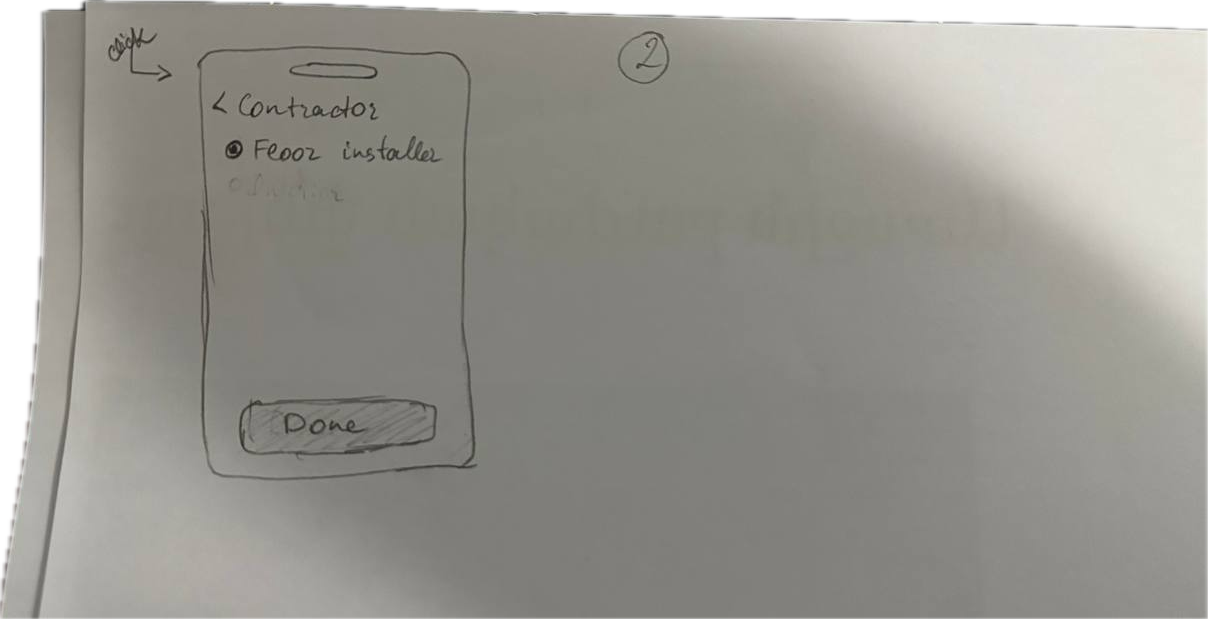 click
2
< Contractor
Floor installer
Done